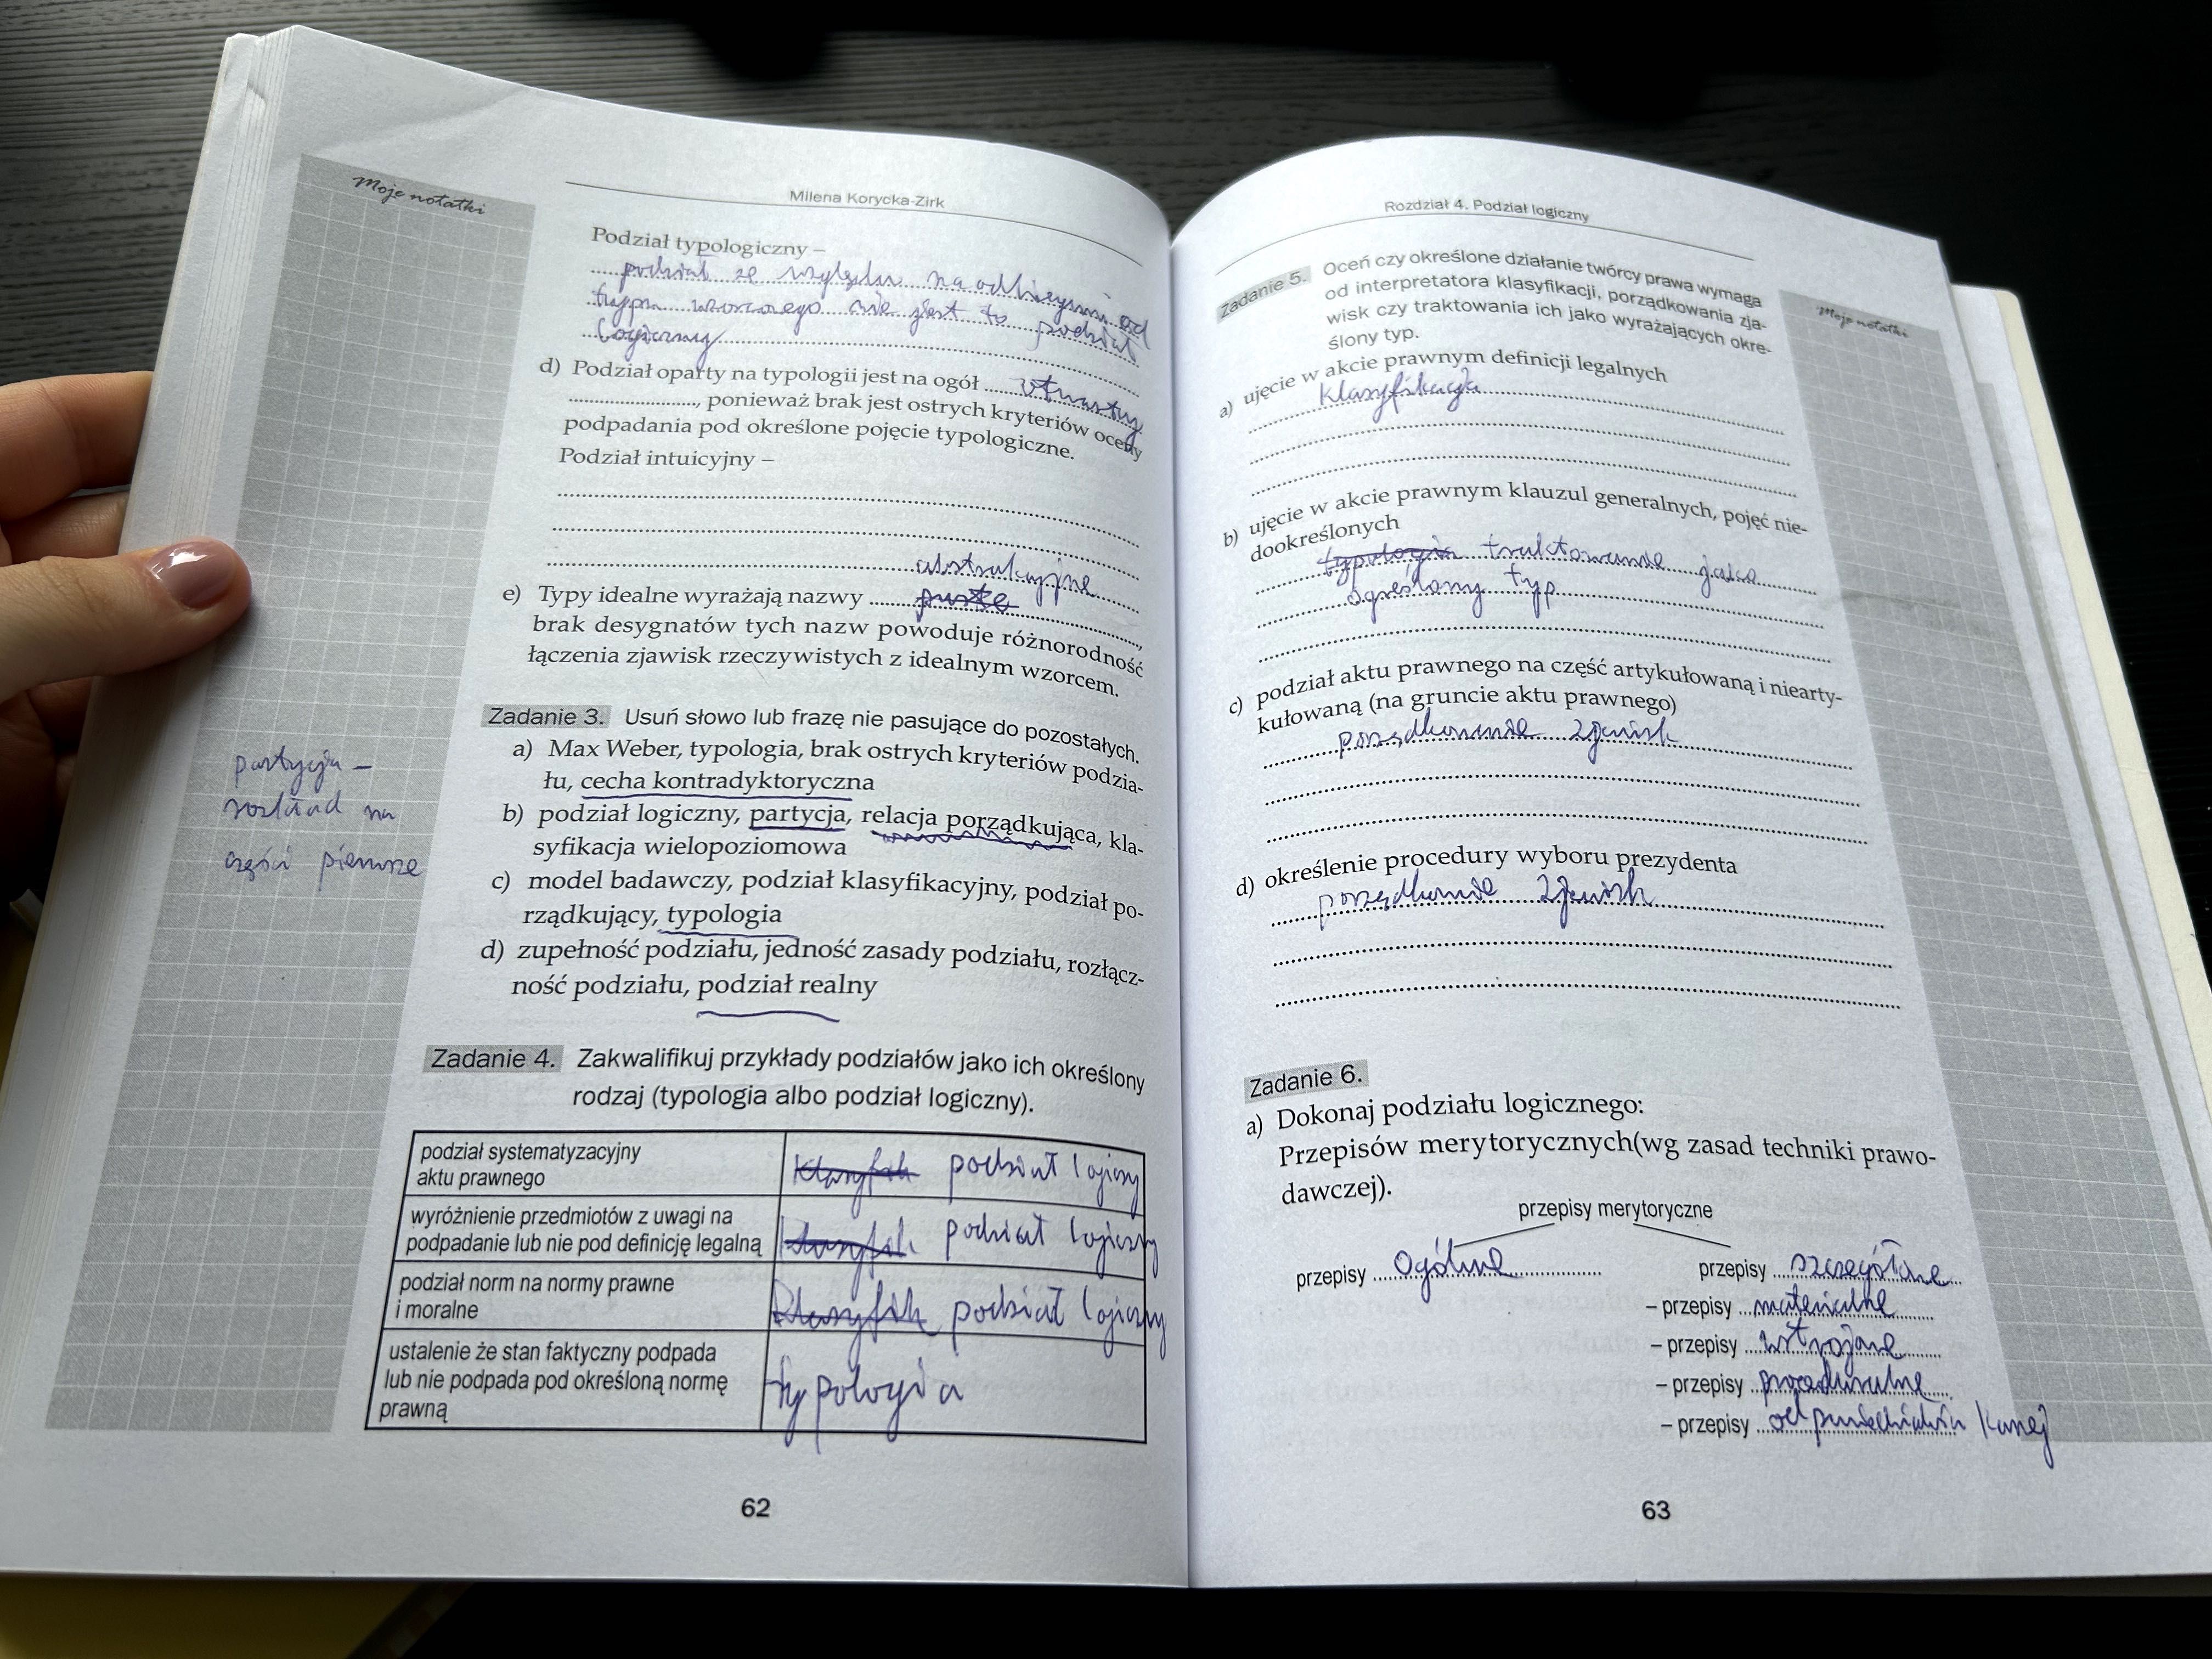 Moje notatki
Milena Korycka-Zirk
Podział typologiczny –
podział ze względu na odbieganie od
typu wzorcowego nie jest to podział
logiczny
d) Podział oparty na typologii jest na ogół otwarty
, ponieważ brak jest ostrych kryteriów oceny
podpadania pod określone pojęcie typologiczne.
Podział intuicyjny –
abstrakcyjne
e) Typy idealne wyrażają nazwy puste
brak desygnatów tych nazw powoduje różnorodność
łączenia zjawisk rzeczywistych z idealnym wzorcem.
Zadanie 3. Usuń słowo lub frazę nie pasujące do pozostałych.
a) Max Weber, typologia, brak ostrych kryteriów podzia-
łu, cecha kontradyktoryczna
b) podział logiczny, partycja, relacja porządkująca, kla-
syfikacja wielopoziomowa
c) model badawczy, podział klasyfikacyjny, podział po-
rządkujący, typologia
d) zupełność podziału, jedność zasady podziału, rozłącz-
ność podziału, podział realny
partycja –
rozkład na
części pierwsze
Zadanie 4. Zakwalifikuj przykłady podziałów jako ich określony
rodzaj (typologia albo podział logiczny).
podział systematyzacyjny
aktu prawnego
klasyfik podział logiczny
wyróżnienie przedmiotów z uwagi na
podpadanie lub nie pod definicję legalną
klasyfik podział logiczny
podział norm na normy prawne
i moralne
klasyfik podział logiczny
ustalenie że stan faktyczny podpada
lub nie podpada pod określoną normę
prawną
typologia
62
Rozdział 4. Podział logiczny
Moje notatki
Zadanie 5. Oceń czy określone działanie twórcy prawa wymaga
od interpretatora klasyfikacji, porządkowania zja-
wisk czy traktowania ich jako wyrażających okre-
ślony typ.
a) ujęcie w akcie prawnym definicji legalnych
klasyfikacja
b) ujęcie w akcie prawnym klauzul generalnych, pojęć nie-
dookreślonych
typologia traktowanie jako
określony typ
c) podział aktu prawnego na część artykułowaną i niearty-
kułowaną (na gruncie aktu prawnego)
porządkowanie zjawisk
d) określenie procedury wyboru prezydenta
porządkowanie zjawisk
Zadanie 6.
a) Dokonaj podziału logicznego:
Przepisów merytorycznych(wg zasad techniki prawo-
dawczej).
przepisy merytoryczne
przepisy ogólne
przepisy szczegółowe
– przepisy materialne
– przepisy ustrojowe
– przepisy proceduralne
– przepisy odpowiedzialności karnej
63